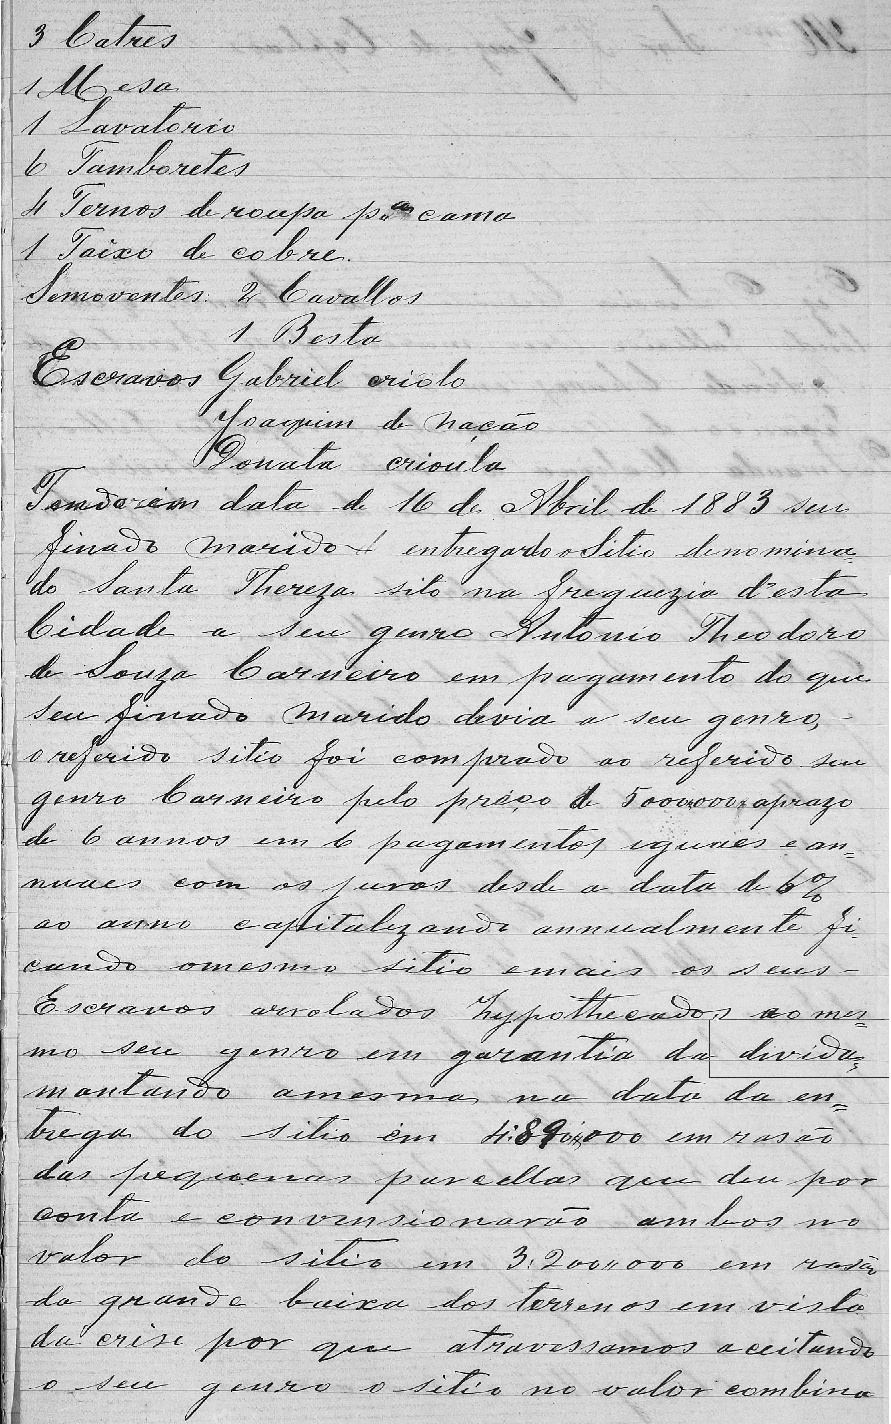 3 Catres
1 Mesa
1 Lavatorio
6 Tamboretes
4 Ternos de roupa pª cama
1 Taixo de cobre.
Semoventes: 2 Cavallos
1 Besta
Escravos Gabriel criolo
Joaquim de nação
Donata crioula
Tendo em data de 16 de Abril de 1883 seu
finado marido entregado o Sitio denomina=
do Santa Thereza sito na freguezia d'esta
Cidade a seu genro Antonio Theodoro
de Souza Carneiro em pagamento do que
seu finado marido devia a seu genro, -
o referido sitio foi comprado ao referido seu
genro Carneiro pelo preço de 5000,000 aprazo
de 6 annos em 6 pagamentos iguaes e an=
nuaes com os juros desde a data de 6%
ao anno capitalizando annualmente fi=
cando omesmo sitio emais os seus -
Escravos arrolados hypothecados ao mes=
mo seu genro em garantia da divida=
montando amesma na data da en=
trega do sitio em 4:890,000 em rasão
das pequenas parcellas que deu por
conta e convensionarão ambos no
valor do sitio em 3:200,,000 em rasão
da grande baixa dos terrenos em vista
da crise por que atravessamos aceitando
o seu genro o sitio no valor combina